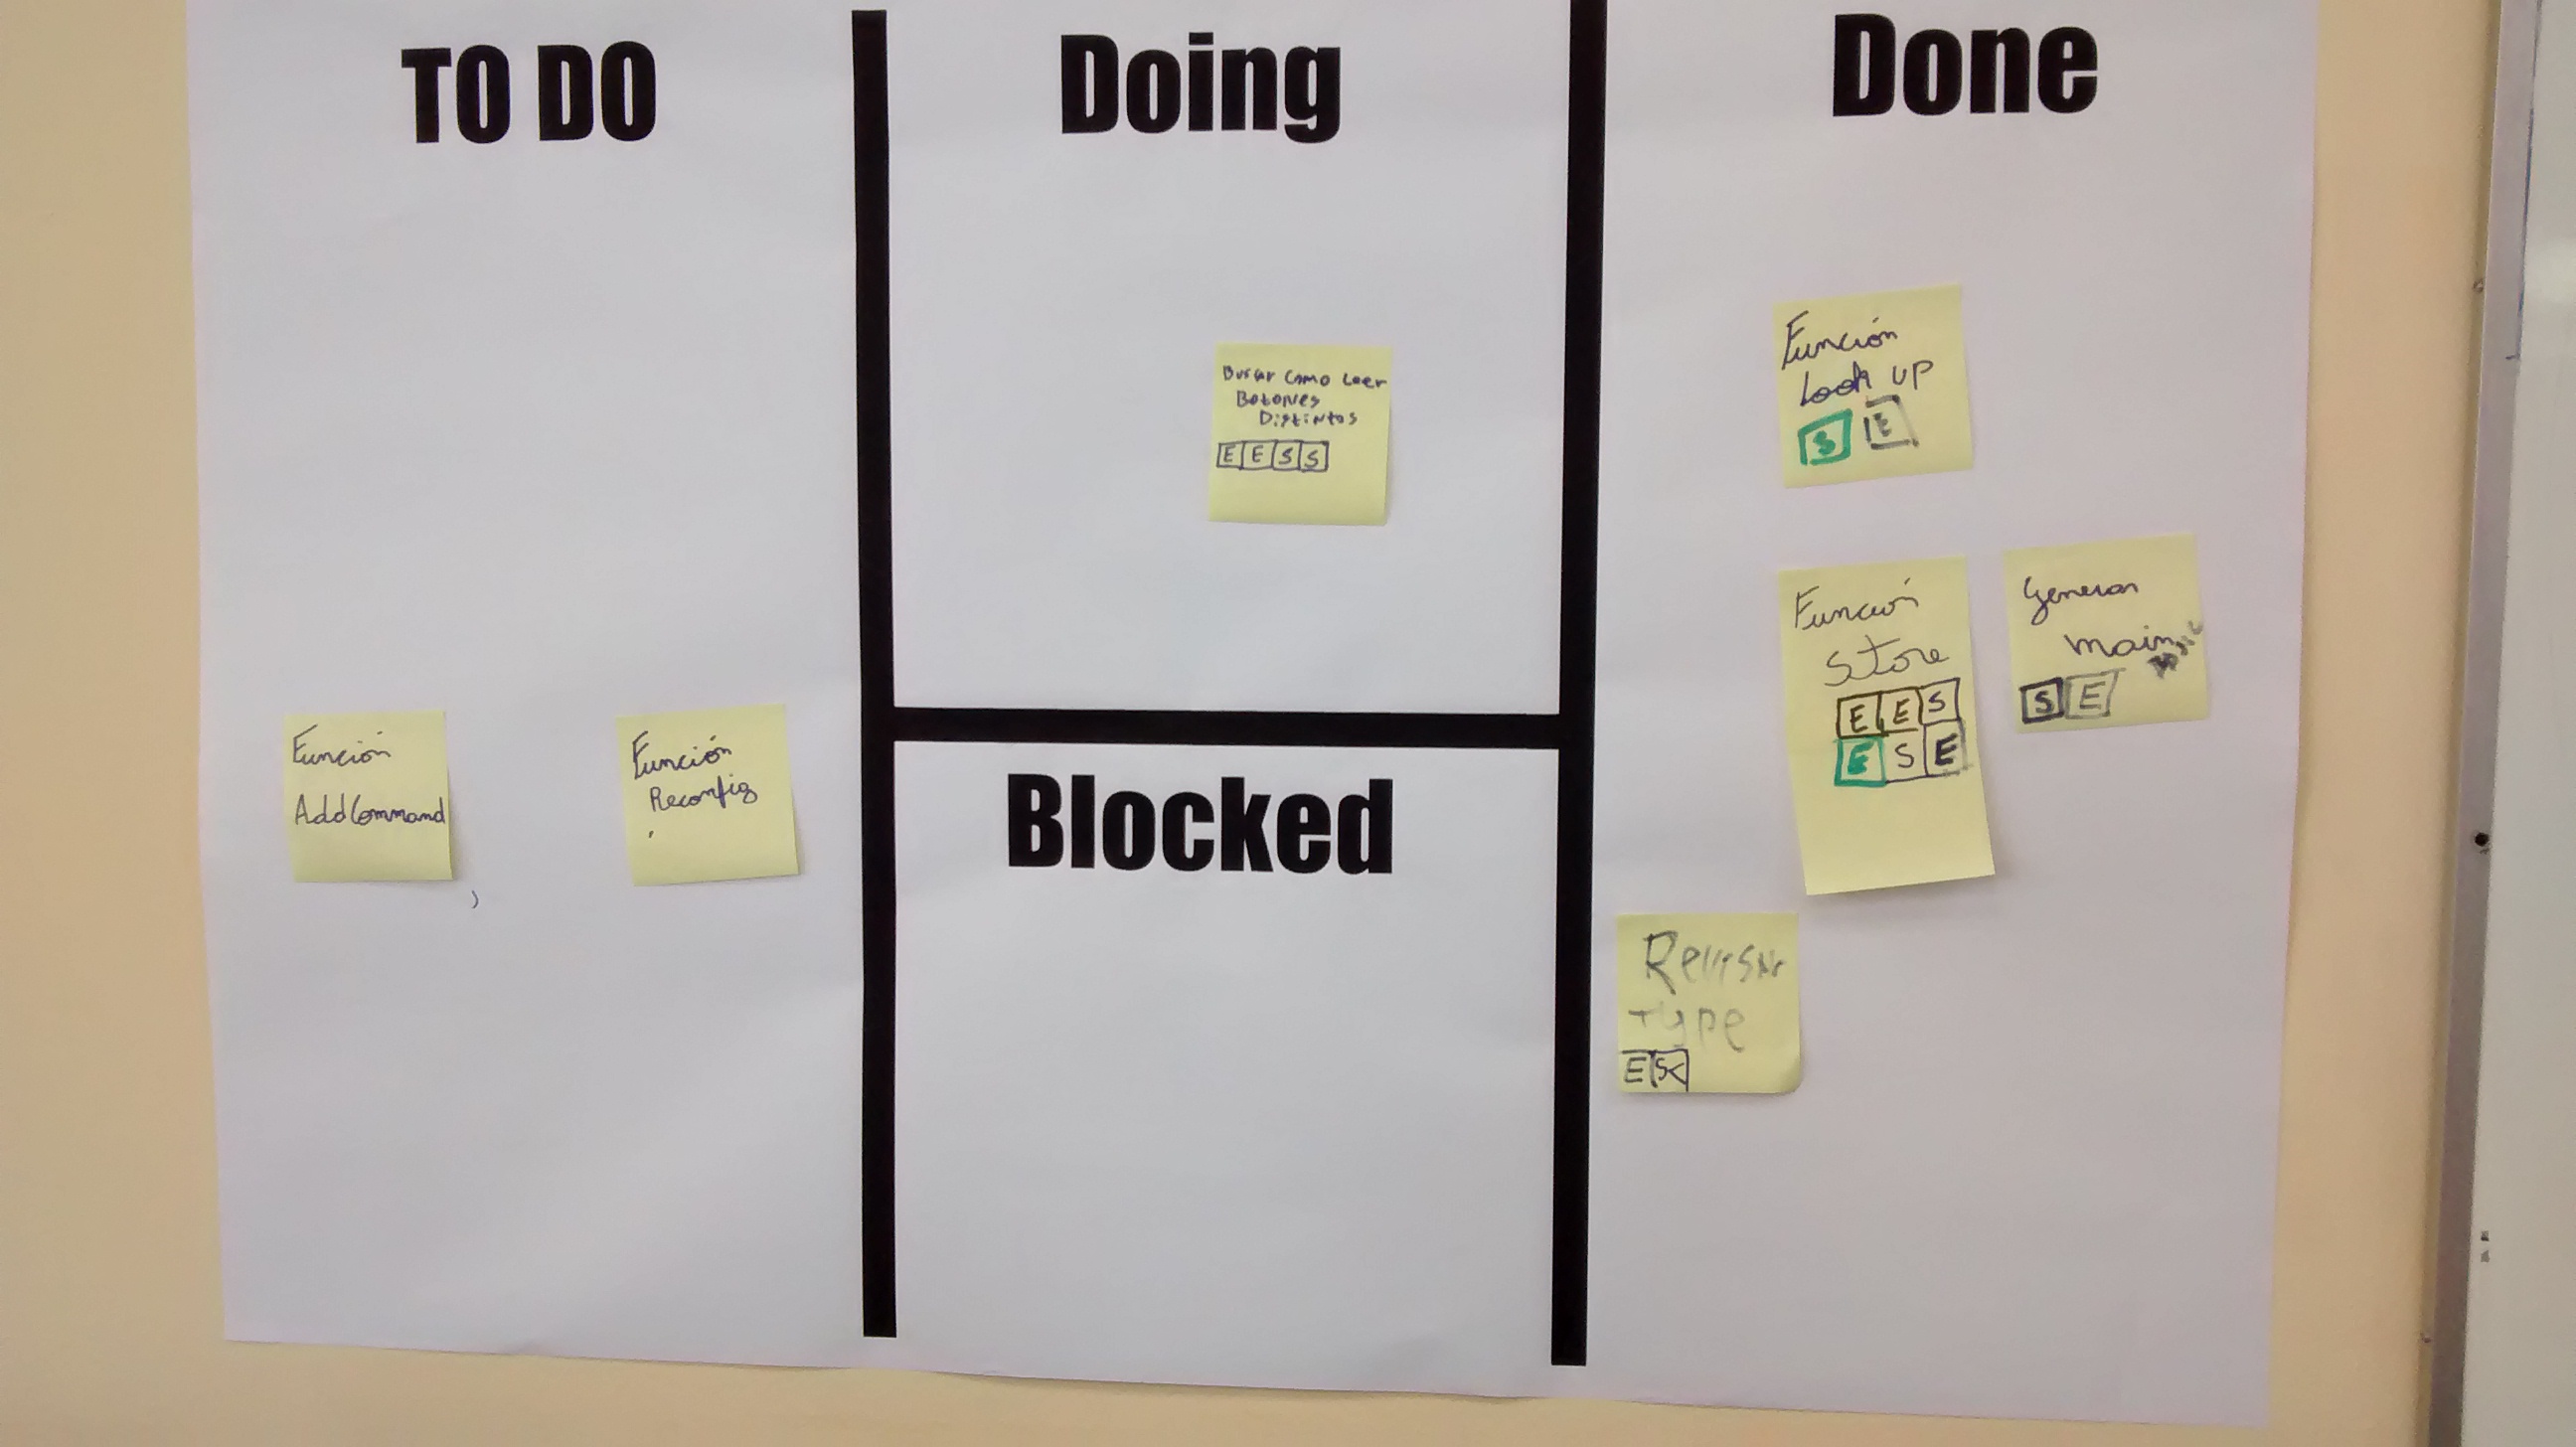 TO DO
Función
AddCommand
Función
Reconfig
Doing
Buscar Como Leer
Botones
Distintos
E E S S
Blocked
Done
Función
Look up
S E
Función
Store
E E S
E S E
Generar
main
S E
Revisar
Type
E S